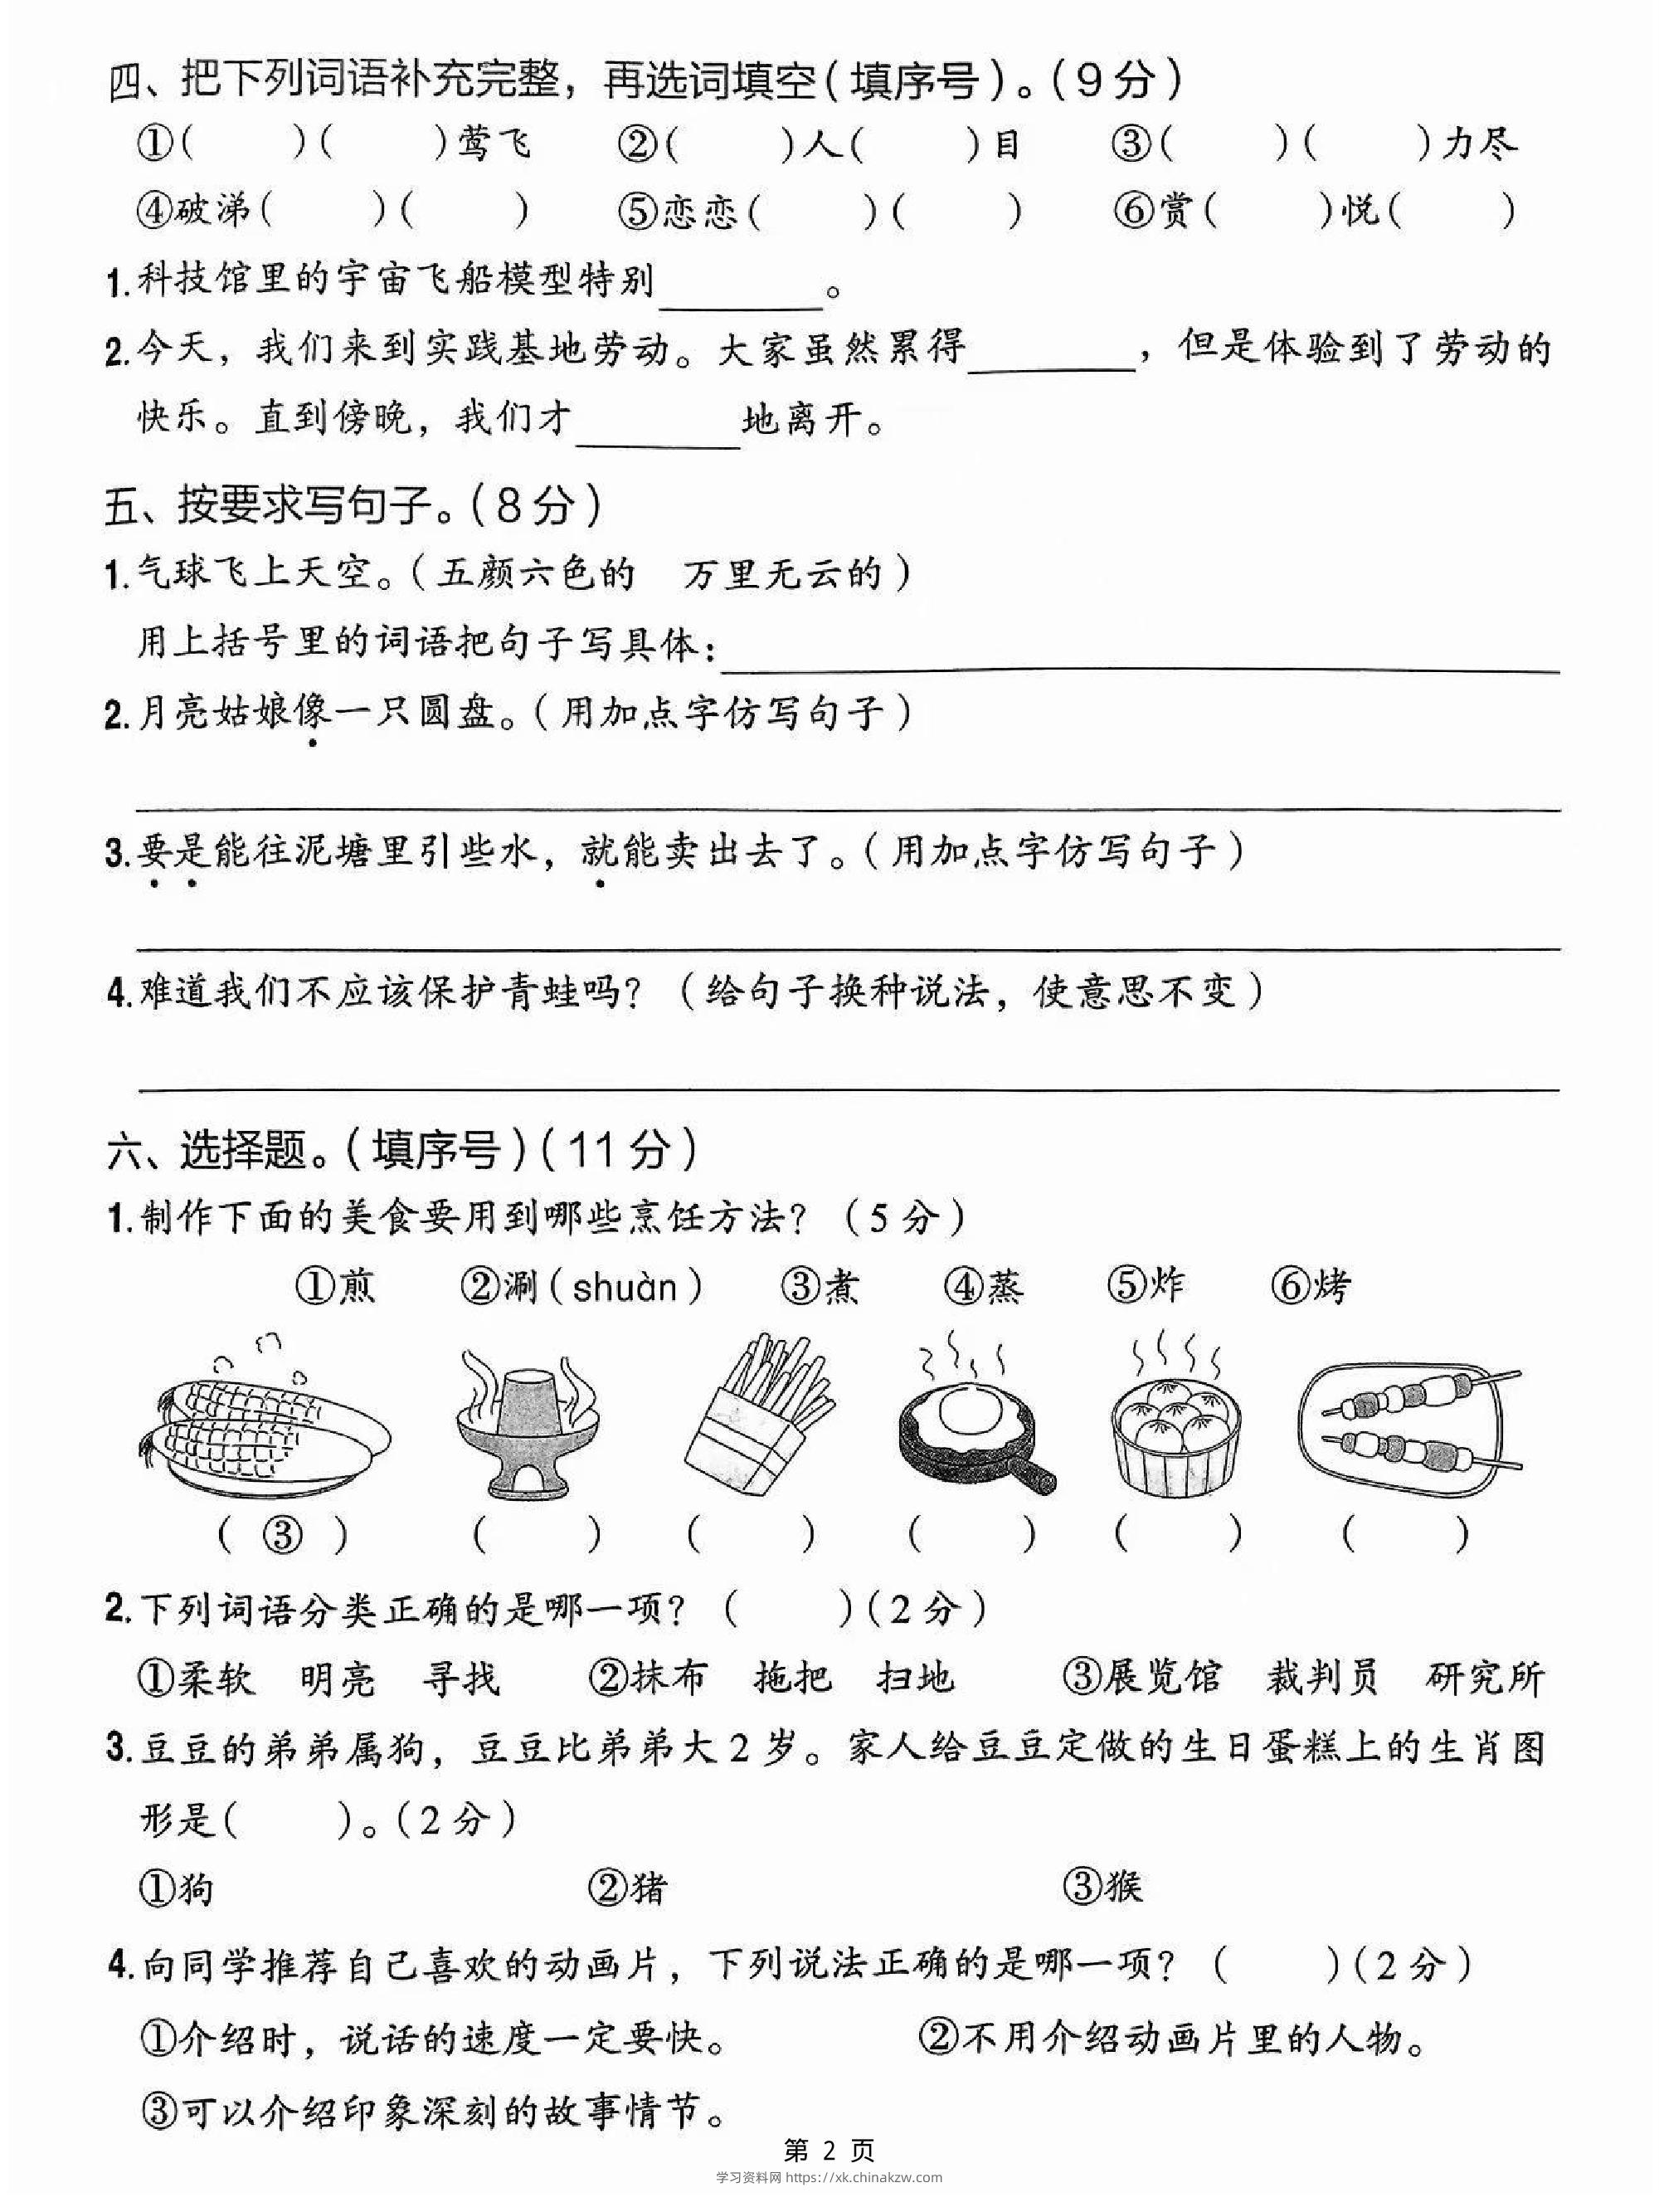 四、把下列词语补充完整，再选词填空(填序号)。(9分)
①(　　)(　　)莺飞　②(　　)人(　　)目　③(　　)(　　)力尽
④破涕(　　)(　　)　⑤恋恋(　　)(　　)　⑥赏(　　)悦(　　)
1.科技馆里的宇宙飞船模型特别______。
2.今天，我们来到实践基地劳动。大家虽然累得______，但是体验到了劳动的
快乐。直到傍晚，我们才______地离开。
五、按要求写句子。(8分)
1.气球飞上天空。(五颜六色的　万里无云的)
用上括号里的词语把句子写具体：
2.月亮姑娘像一只圆盘。(用加点字仿写句子)
3.要是能往泥塘里引些水，就能卖出去了。(用加点字仿写句子)
4.难道我们不应该保护青蛙吗？(给句子换种说法，使意思不变)
六、选择题。(填序号)(11分)
1.制作下面的美食要用到哪些烹饪方法？(5分)
①煎　②涮(shuàn)　③煮　④蒸　⑤炸　⑥烤
(③)　(　　)　(　　)　(　　)　(　　)　(　　)
2.下列词语分类正确的是哪一项？(　　)(2分)
①柔软　明亮　寻找　②抹布　拖把　扫地　③展览馆　裁判员　研究所
3.豆豆的弟弟属狗，豆豆比弟弟大2岁。家人给豆豆定做的生日蛋糕上的生肖图
形是(　　)。(2分)
①狗　②猪　③猴
4.向同学推荐自己喜欢的动画片，下列说法正确的是哪一项？(　　)(2分)
①介绍时，说话的速度一定要快。　②不用介绍动画片里的人物。
③可以介绍印象深刻的故事情节。
第 2 页
学习资料网 https://xk.chinakzw.com